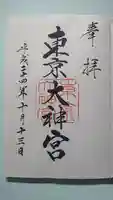 奉拝
東京大神宮
平成二十四年十月十三日